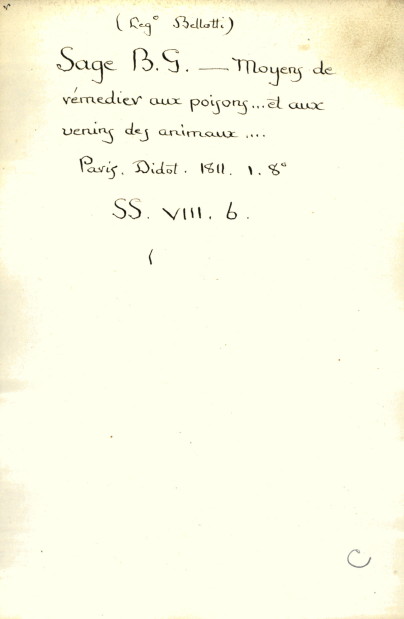 (Leg° Bellotti)
Sage B.G. — Moyens de
rémedier aux poisons... et aux
venins des animaux ....
Paris. Didot. 1811. 1. 8°
SS. VIII. 6.
(
C